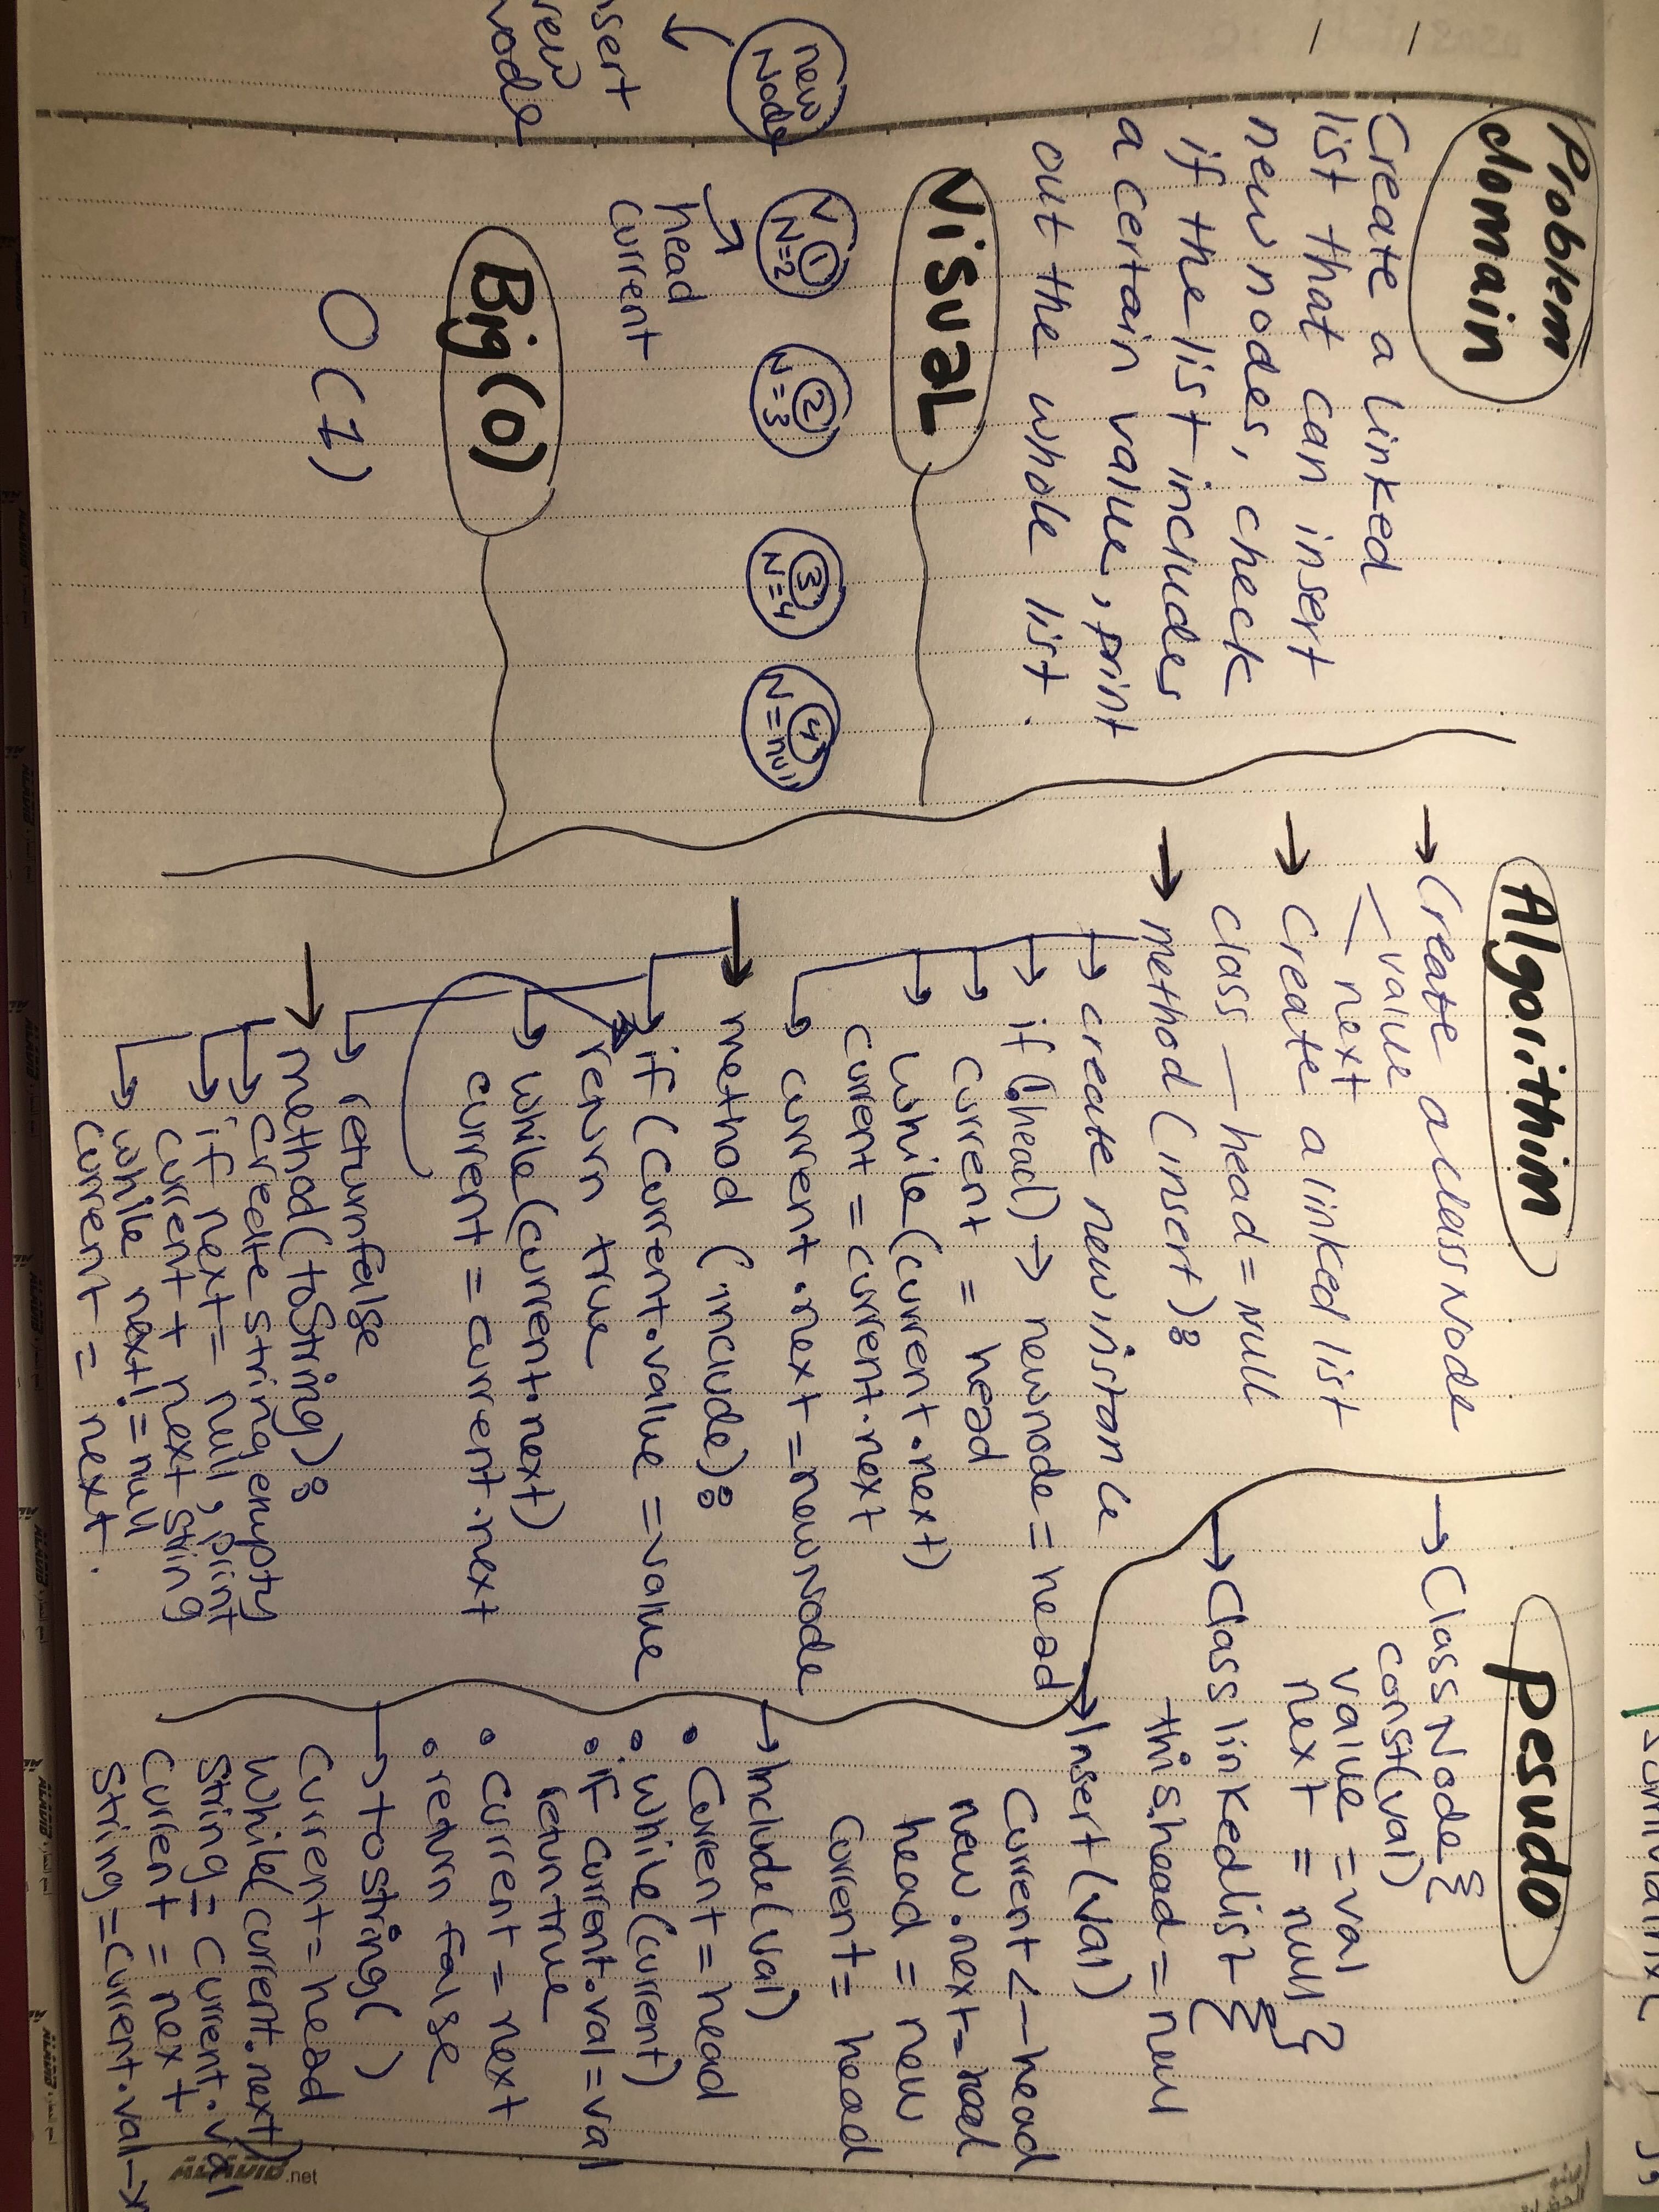 Problem
domain
Create a linked
list that can insert
new nodes, check
if the list includes
a certain value, print
out the whole list.
Visual
new
Node
V 1
N=2
2
N=3
3
N=4
4
N=null
head
current
new
Big(O)
O(1)
Algorithim
→ Create a class Node
value
next
→ Create a linked list
class — head = NULL
→ method (insert):
→ create new instance
→ if (!head) → newnode = head
→ current = head
→ while(current.next)
current = current.next
→ current.next = newNode
→ method (include):
→ if (current.value = value
return true
→ while(current.next)
current = current.next
→ return false
→ method(toString):
→ create string empty
→ if next = null, print
current + next string
→ while next! = null
current = next.
pesudo
→ Class Node {
const(val)
value = val
next = null }
→ Class linkedlist {
this.head = null
→ Insert(val)
Current <— head
new.next = head
head = new
Current = head
→ Include(val)
• Current = head
• while(current)
• if current.val = val
retun true
• current = next
• return false
→ toString( )
Current = head
While(current.next)
String = Current.val
Current = next
String = Current.val →
ALADIB.net
ALADIB
ALADIB
ALADIB
ALADIB
ALADIB